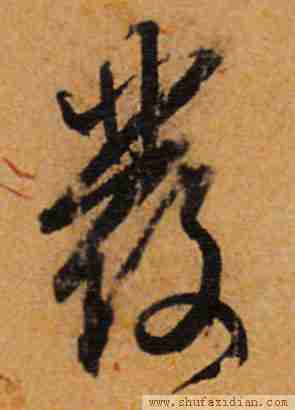 發
www.shufaxidian.com